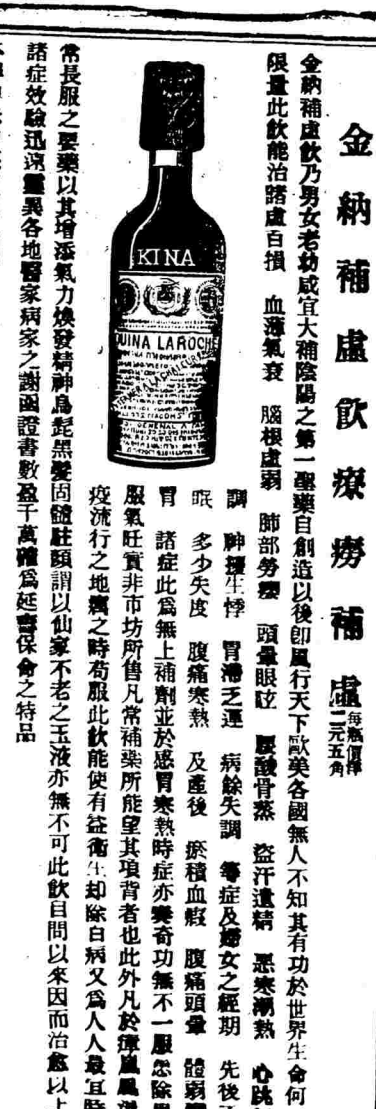 金納補虛飲療癆補虛
每瓶價洋
二元五角
金納補虛飲乃男女老幼咸宜大補陰陽之第一聖藥自創造以後卽風行天下歐美各國無人不知其有功於世界生命何
限量此飲能治諸虛百損 血薄氣衰 腦根虛弱 肺部勞瘵 頭暈眼眩 腰酸骨蒸 盜汗遺精 惡寒潮熱 心跳
調 神擾生悸 胃滯乏運 病餘失調 等症及婦女之經期 先後
眠 多少失度 腹痛寒熱 及產後 瘀積血瘕 腹痛頭暈 體弱
胃 諸症此爲無上補劑並於感冒寒熱時症亦奏奇功無不一服忽除
服氣旺實非市坊所售凡常補藥所能望其項背者也此外凡於瘴嵐
疫流行之地癘之時苟服此飲能使有益衛生却除百病又爲人人最宜時
常長服之要藥以其增添氣力煥發精神烏髭黑髮固髓駐顏謂以仙家不老之玉液亦無不可此飲自問以來因而治愈以上
諸症效驗迅速靈異各地醫家病家之謝函證書數盈千萬確爲延壽保命之特品
KINA
QUINA LAROCHE